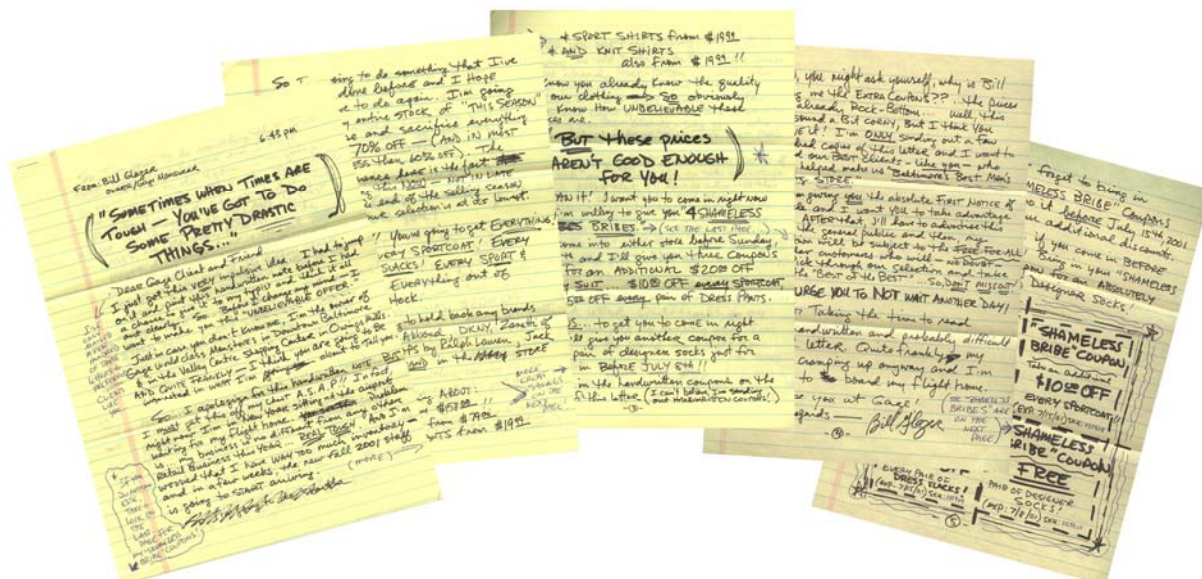 6:43 pm
From: Bill Glazer
"SOMETIMES WHEN TIMES ARE
TOUGH — YOU'VE GOT TO DO
SOME PRETTY DRASTIC
THINGS..."
DEAR Gage Client AND Friend,
I just got this VERY impulsive idea. I had to jump
on it and post this handwritten note before I had
a chance to give to my typist AND think it all
out clearly! So... Before I change my mind — I
want to make you this "UNBELIEVABLE OFFER."
Just in case you don't know me, I'm the owner of
Gage World class Menstores in Downtown Baltimore
& in the Valley Centre Shopping Center in Owings Mills.
AND... QUITE FRANKLY — I think you are going to be
interested in what I'm about to tell you!
So... I apologize for this handwritten NOTE, BUT
I must get this off my chest A.S.A.P!! In fact,
right now I'm in New York sitting at the airport
waiting for my flight home. Problem
is... my business is no different from any other
Retail Business this YEAR... REAL TOUGH. And I'm
worried that I have WAY TOO much inventory—
and in a few weeks, the new Fall 2001 stuff
is going to START arriving.
(MORE)
LAST
PAGE FOR
MY "SHAMELESS
BRIBE" COUPONS!
ing to do something that I've
done before and I HOPE
e to do again. I'm going
y entire STOCK of "THIS SEASON"
e and sacrifice everything
70% OFF — (AND IN MOST
ess than 60% OFF). The
here is the fact
this NOW — NOT IN LATE
e end of the selling season
re selection is at its lowest.
! You're going to get EVERYTHING!
VERY SPORTCOAT! EVERY
SLACKS! EVERY SPORT &
EVERYthing out of
tock.
to hold back any brands
Abboud, DKNY, Zanella of
TS by Ralph Lauren, Jack
AND in the STORE
ing ABOUT:
m $158.00
from $79.99
RTS from $19.99
MORE
GREAT
SAVINGS
ON THE
NEXT
PAGE
* SPORT SHIRTS from $19.99
* AND KNIT SHIRTS
also from $19.99!!
know you already know the quality
our clothing → SO obviously
know How UNBELIEVABLE these
ces are.
BUT these prices
AREN'T GOOD ENOUGH
FOR YOU!
AN it! I want you to come in right now
I'm willing to give you "4 SHAMELESS
BRIBES. → (SEE THE LAST PAGE...)
ome into either store before Sunday,
and I'll give you three coupons
for an ADDITIONAL $20.00 OFF
y SUIT... $10.00 OFF every SPORTCOAT,
$5.00 OFF every pair of DRESS PANTS.
S... to get you to come in right
ll give you another coupon for a
pair of designer socks just for
in BEFORE JULY 8th!!
in the handwritten coupons on the
f this letter (I can't believe I'm sending
out HANDWRITTEN COUPONS!)
-3-
, you might ask yourself, why is Bill
me the EXTRA COUPONS??... the prices
already ROCK-Bottom... Well, this
sound a Bit CORNY, But I think you
VE it! I'm ONLY sending out a few
dred copies of this letter and I want to
d our BEST Clients — like you — who
helped make us "Baltimore's Best Men's
STORE."
m giving you the absolute FIRST NOTICE of
le and I want you to take advantage
AFTER that I'll have to advertise this
the general public and then my
tion will be subject to the FREE-FOR-ALL
customers who will — NO DOUBT —
ick through our selection and take
the "Best of the BEST"... SO, DON'T MISS OUT!
URGE YOU TO NOT WAIT ANOTHER DAY!
r Taking the time to read
handwritten and probably difficult
letter. Quite frankly, my
cramping up anyway and I'm
to board my flight home.
ee you at Gage!
egards —
Bill Glazer
-4-
THE "SHAMELESS
BRIBES" ARE
ON THE
NEXT
PAGE
forget to bring in
MELESS BRIBE" COUPONS
o it before July 15th, 2001
ur additional discounts.
if you come in BEFORE
Bring in your "SHAMELESS
ON FOR AN ABSOLUTELY
Designer Socks!
"SHAMELESS
BRIBE" COUPON
TAKE AN additional
$10.00 OFF
EVERY SPORTCOAT!
(EXP. 7/15/01)
"SHAMELESS
BRIBE" COUPON
FREE
PAIR OF DESIGNER
SOCKS!
(EXP: 7/8/01)
OFF
EVERY PAIR OF
DRESS SLACKS!
(EXP: 7/15/01)
5